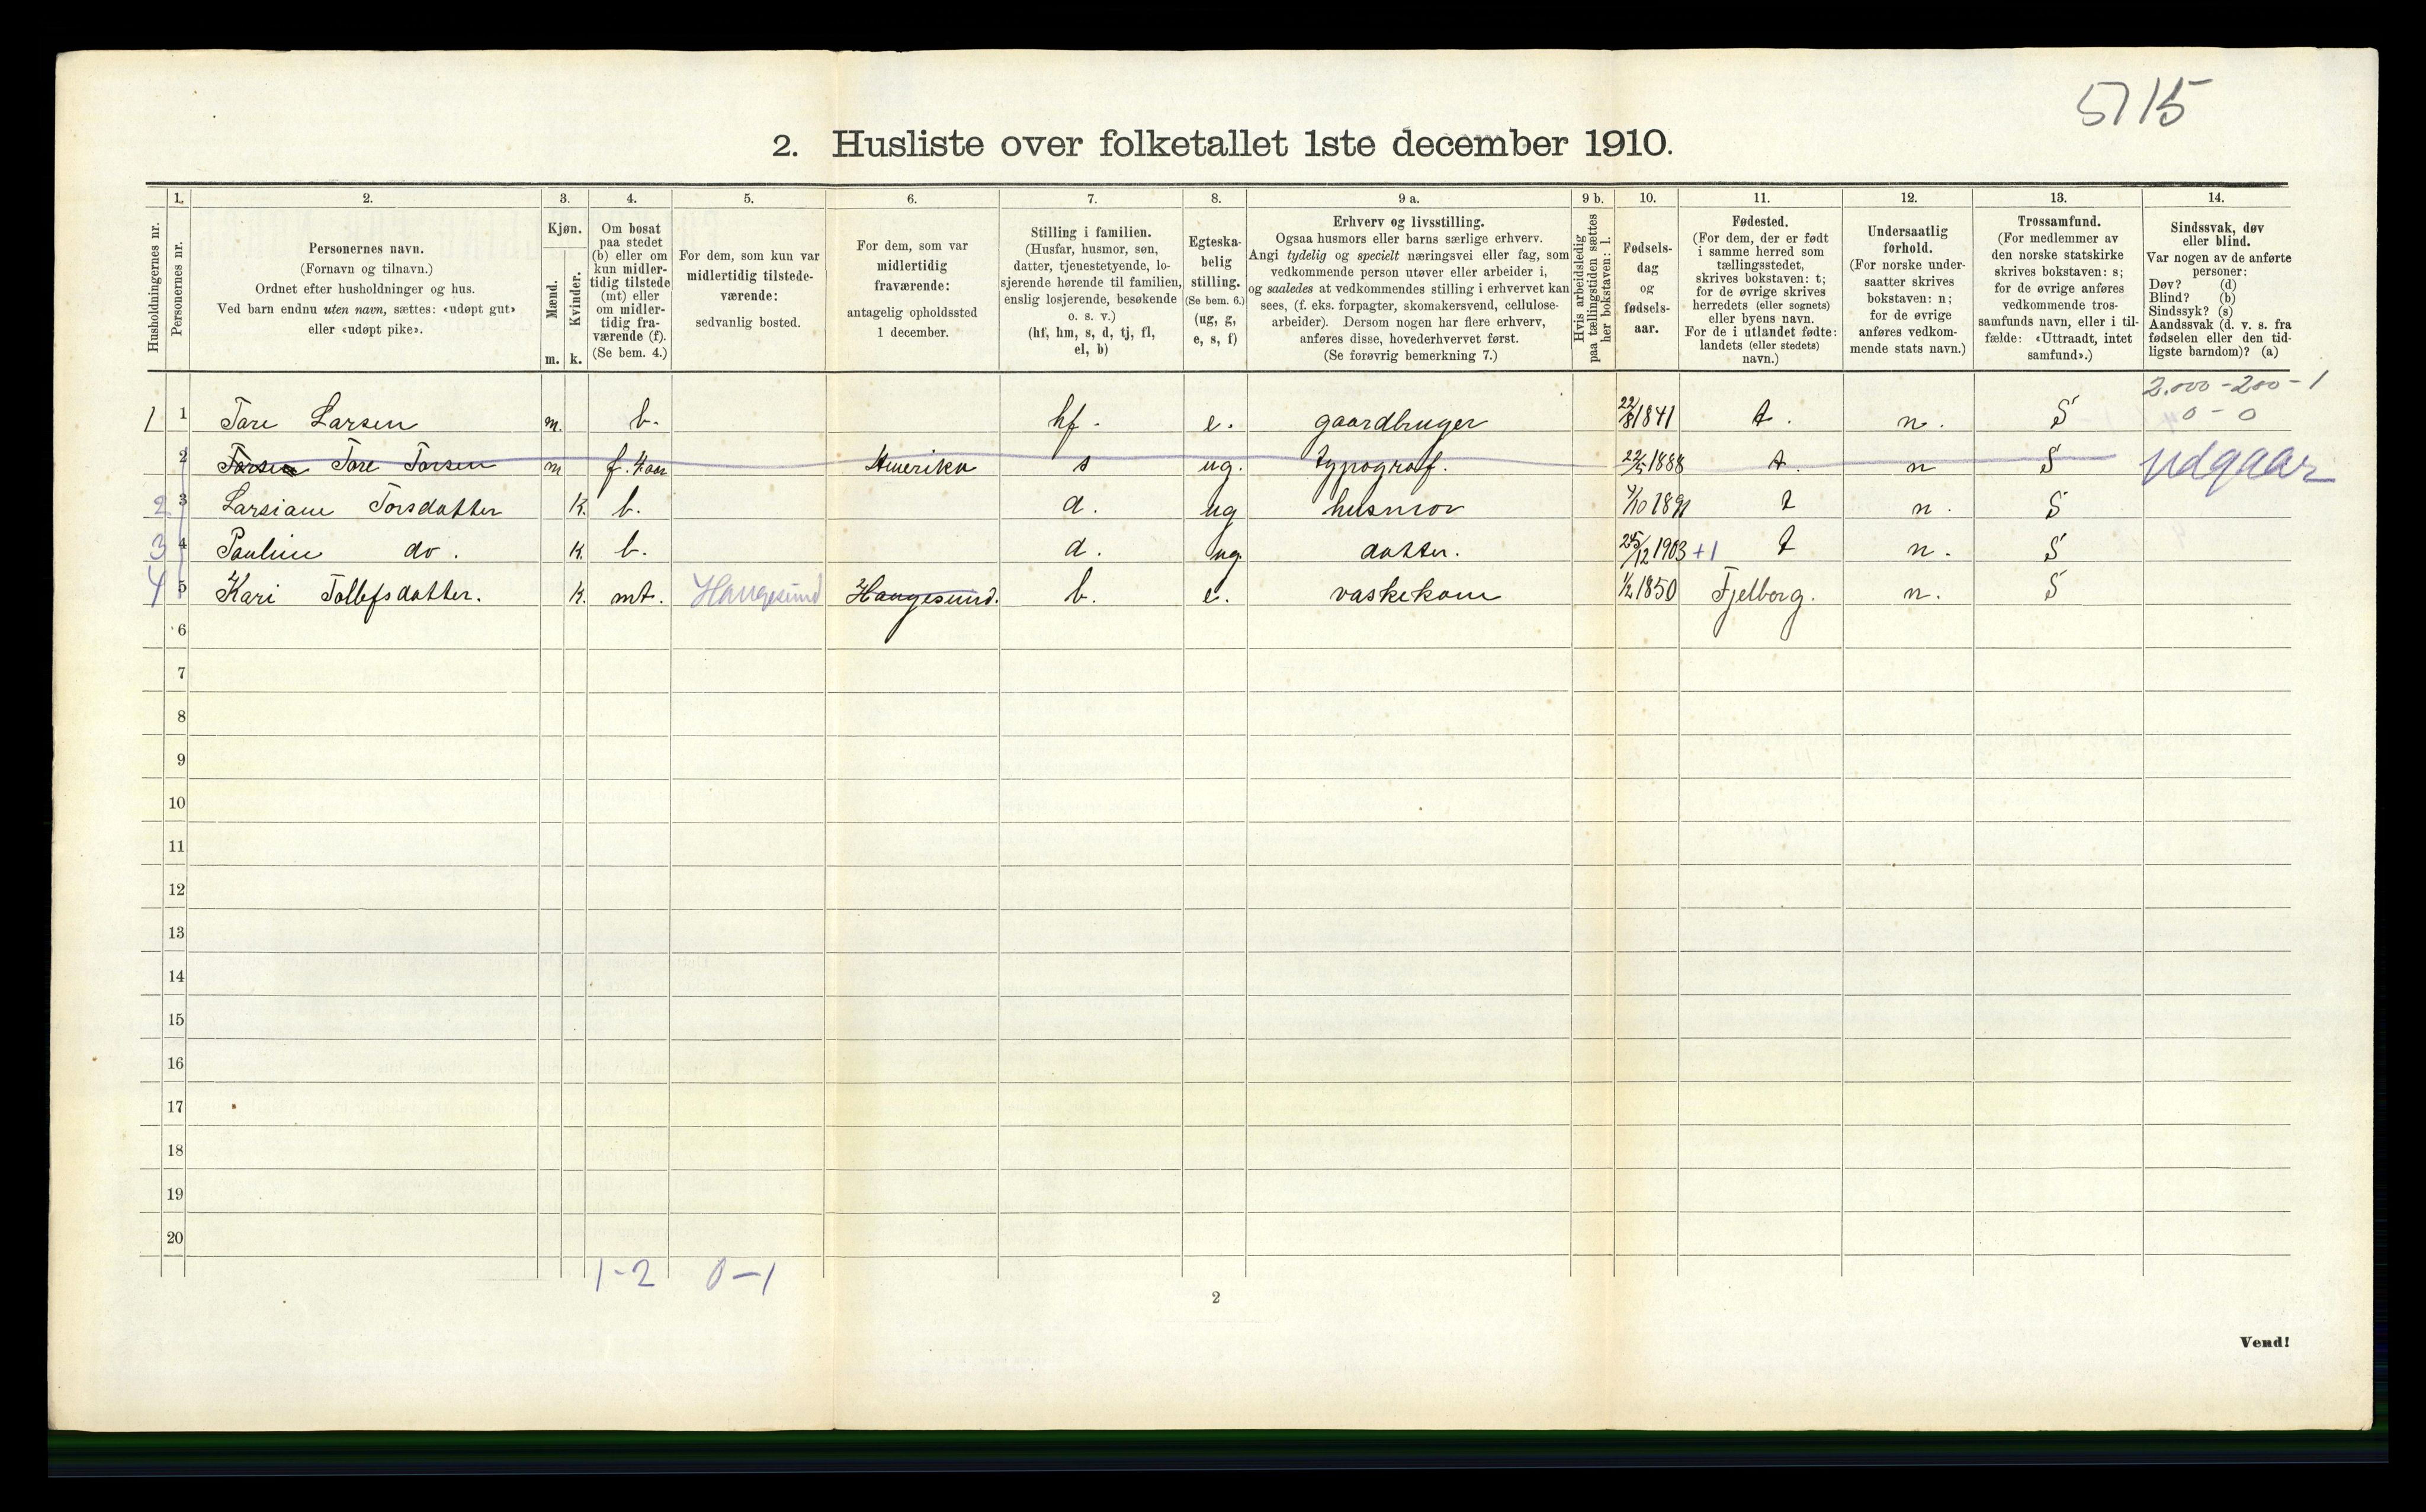 5715
2. Husliste over folketallet 1ste december 1910.
Husholdningernes nr.
1.
Personernes nr.
2.
Personernes navn.
(Fornavn og tilnavn.)
Ordnet efter husholdninger og hus.
Ved barn endnu uten navn, sættes: «udøpt gut»
eller «udøpt pike».
3.
Kjøn.
Mænd.
m.
Kvinder.
k.
4.
Om bosat
paa stedet
(b) eller om
kun midler-
tidig tilstede
(mt) eller
om midler-
tidig fra-
værende (f).
(Se bem. 4.)
5.
For dem, som kun var
midlertidig tilstede-
værende:
sedvanlig bosted.
6.
For dem, som var
midlertidig
fraværende:
antagelig opholdssted
1 december.
7.
Stilling i familien.
(Husfar, husmor, søn,
datter, tjenestetyende, lo-
sjerende hørende til familien,
enslig losjerende, besøkende
o. s. v.)
(hf, hm, s, d, tj, fl,
el, b)
8.
Egteska-
belig
stilling.
(Se bem. 6.)
(ug, g,
e, s, f)
9 a.
Erhverv og livsstilling.
Ogsaa husmors eller barns særlige erhverv.
Angi tydelig og specielt næringsvei eller fag, som
vedkommende person utøver eller arbeider i,
og saaledes at vedkommendes stilling i erhvervet kan
sees, (f. eks. forpagter, skomakersvend, cellulose-
arbeider). Dersom nogen har flere erhverv,
anføres disse, hovederhvervet først.
(Se forøvrig bemerkning 7.)
9 b.
Hvis arbeidsledig
paa tællingstiden sættes
her bokstaven: l.
10.
Fødsels-
dag
og
fødsels-
aar.
11.
Fødested.
(For dem, der er født
i samme herred som
tællingsstedet,
skrives bokstaven: t;
for de øvrige skrives
herredets (eller sognets)
eller byens navn.
For de i utlandet fødte:
landets (eller stedets)
navn.)
12.
Undersaatlig
forhold.
(For norske under-
saatter skrives
bokstaven: n;
for de øvrige
anføres vedkom-
mende stats navn.)
13.
Trossamfund.
(For medlemmer av
den norske statskirke
skrives bokstaven: s;
for de øvrige anføres
vedkommende tros-
samfunds navn, eller i til-
fælde: «Uttraadt, intet
samfund».)
14.
Sindssvak, døv
eller blind.
Var nogen av de anførte
personer:
Døv? (d)
Blind? (b)
Sindssyk? (s)
Aandssvak (d. v. s. fra
fødselen eller den tid-
ligste barndom)? (a)
2.000 - 200 - 1
1 1 Tore Larsen m. b. hf. e. gaardbruger 22/8 1841 t. n. S 0 - 0
2 Torsen Tore Torsen m f. Amerika s ug. typograf. 22/5 1888 t. n S udgaar
2 3 Larsiane Torsdatter K. b. d. ug husmor 4/10 1891 t n. S
3 4 Pauline do. K. b. d. ug. datter. 25/12 1903 +1 t n. S
4 5 Kari Tollefsdatter. K. mt. Haugesund Haugesund. b. e. vaskekone 1/2 1850 Fjelberg. n. S
6
7
8
9
10
11
12
13
14
15
16
17
18
19
20
1-2 0-1
2
Vend!